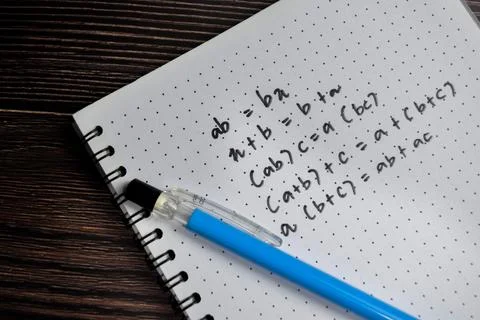 ab = ba
a + b = b + a
(ab) c = a (bc)
(a+b) + c = a + (b+c)
a (b+c) = ab + ac